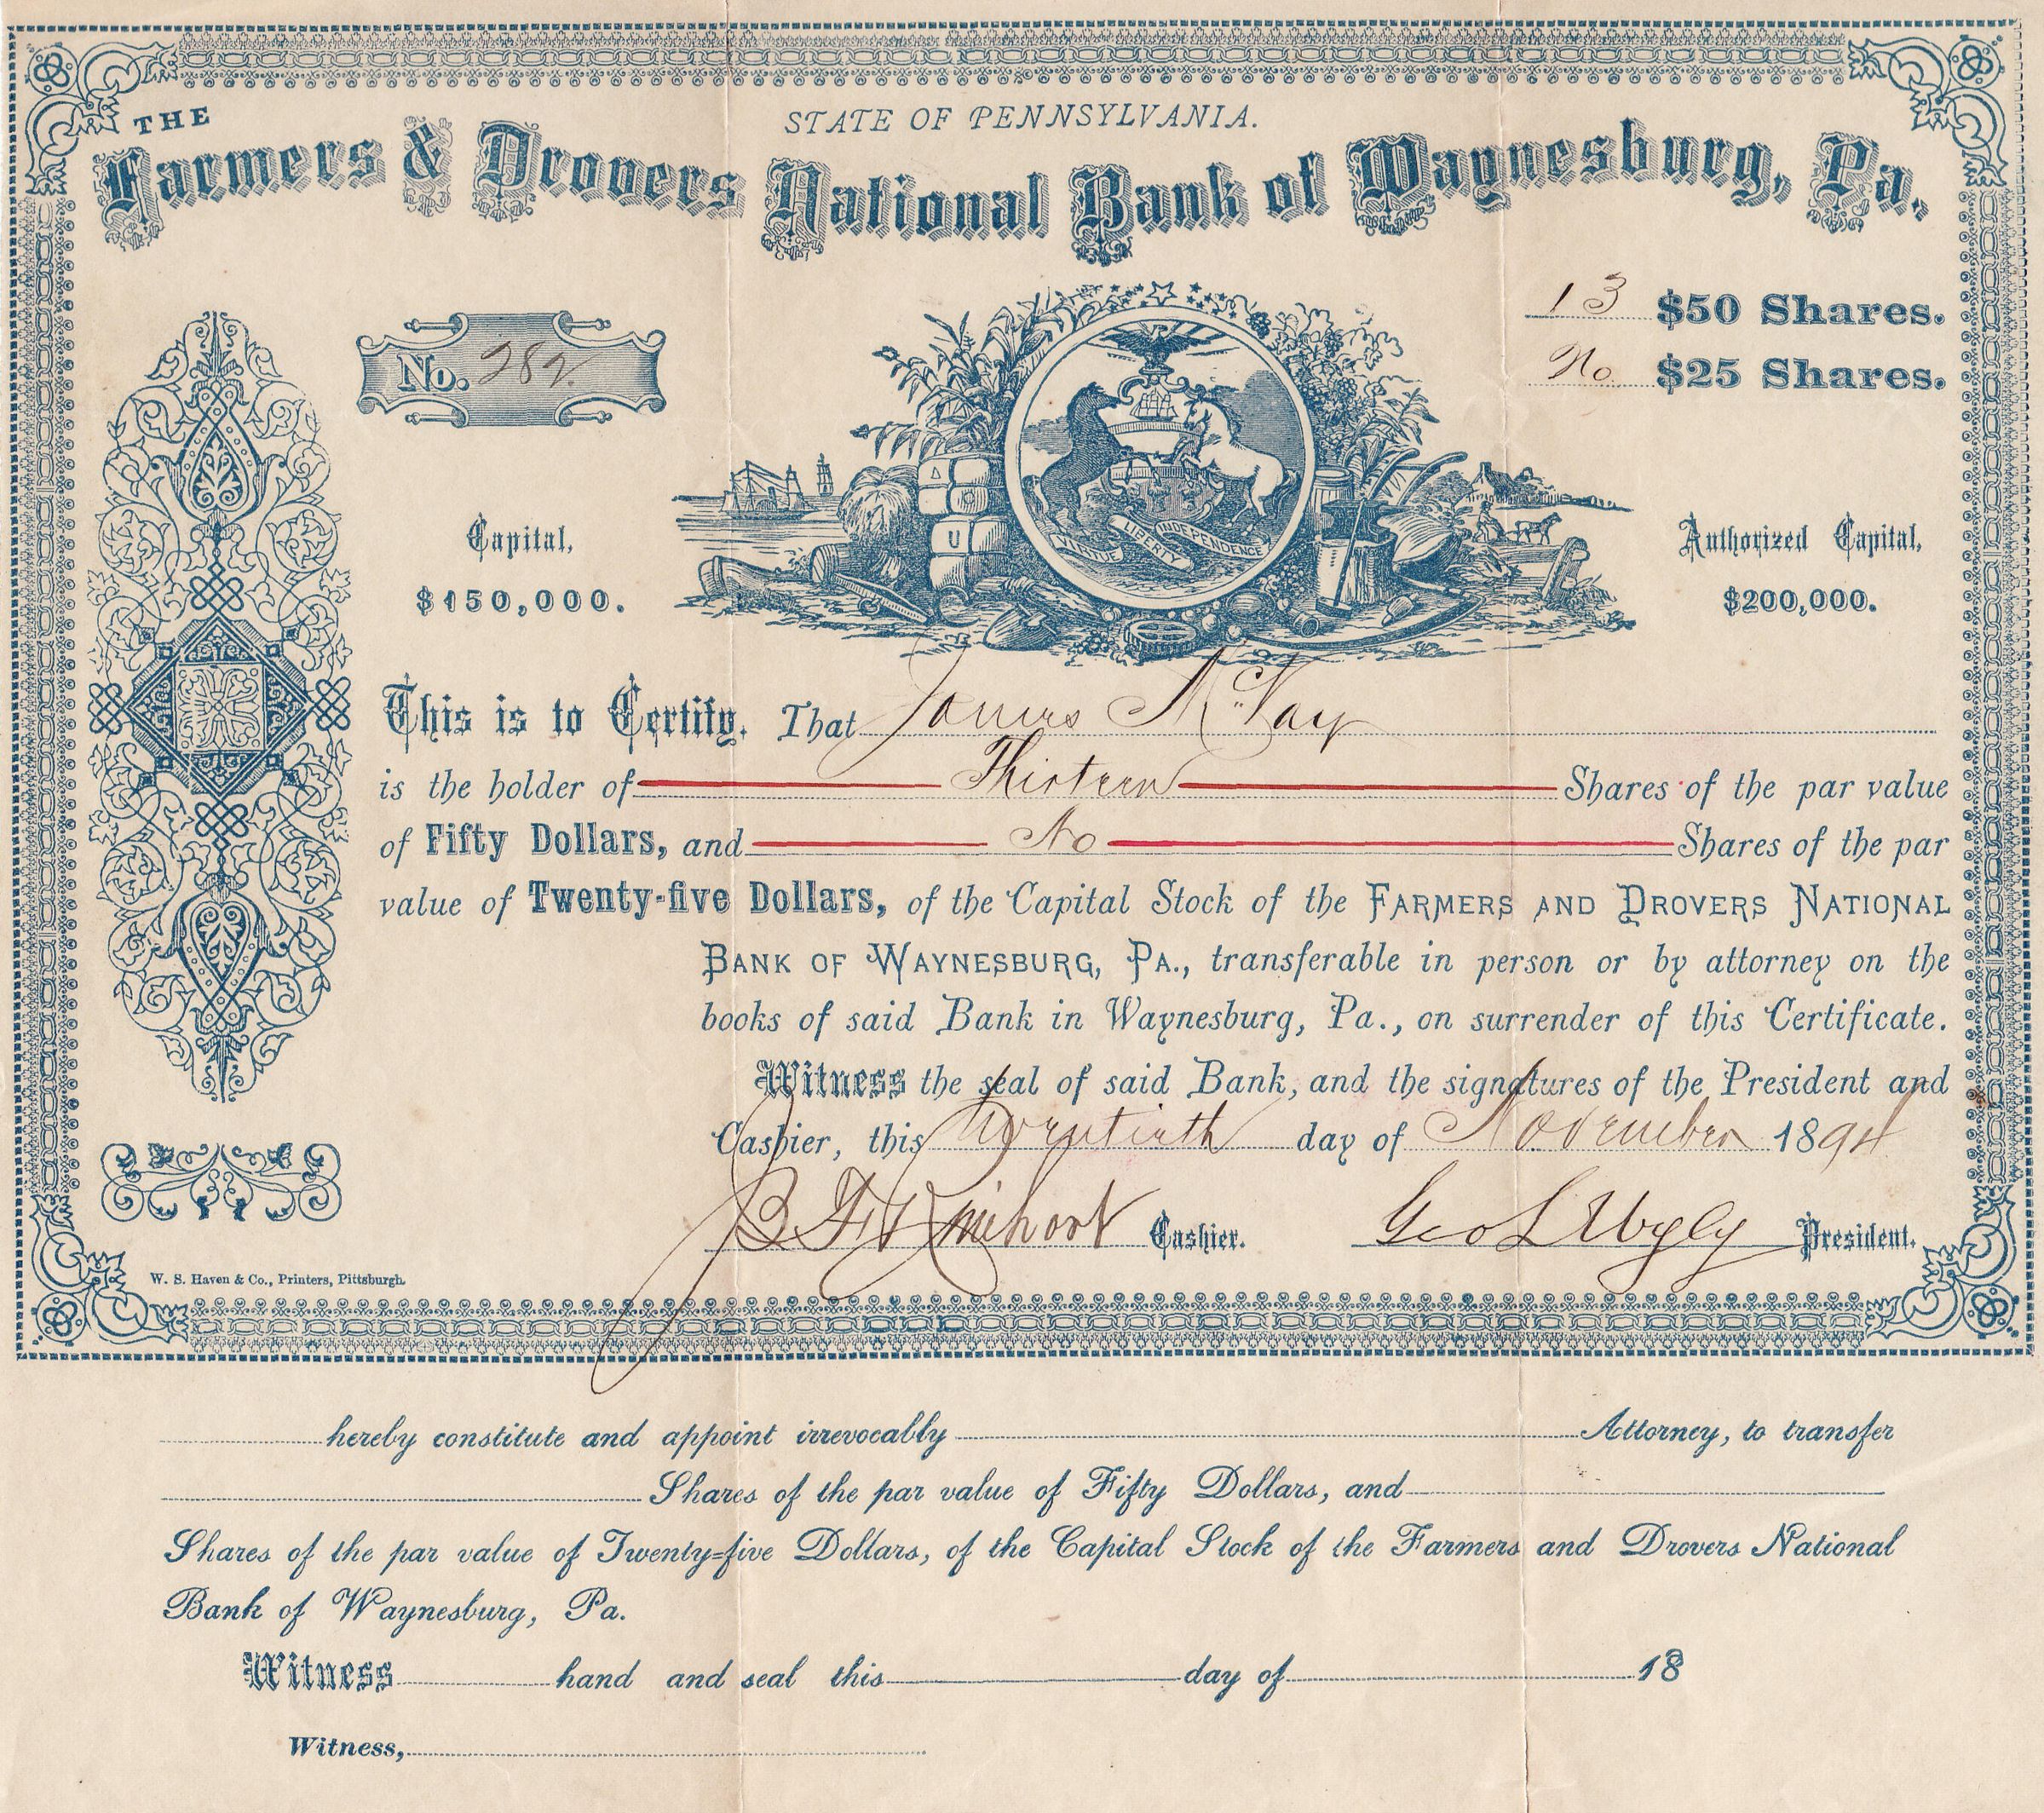 STATE OF PENNSYLVANIA.
THE
Farmers & Drovers National Bank of Waynesburg, Pa.
13 $50 Shares.
No $25 Shares.
No. 282
Capital,
$150,000.
Authorized Capital,
$200,000.
VIRTUE LIBERTY INDEPENDENCE
U
This is to Certify, That James McVay
is the holder of Thirteen Shares of the par value
of Fifty Dollars, and No Shares of the par
value of Twenty-five Dollars, of the Capital Stock of the FARMERS AND DROVERS NATIONAL
BANK OF WAYNESBURG, PA., transferable in person or by attorney on the
books of said Bank in Waynesburg, Pa., on surrender of this Certificate.
Witness the seal of said Bank, and the signatures of the President and
Cashier, this Twentieth day of November 1894
Cashier. Geo L President.
W. S. Haven & Co., Printers, Pittsburgh.
hereby constitute and appoint irrevocably Attorney, to transfer
Shares of the par value of Fifty Dollars, and
Shares of the par value of Twenty-five Dollars, of the Capital Stock of the Farmers and Drovers National
Bank of Waynesburg, Pa.
Witness hand and seal this day of 18
Witness,